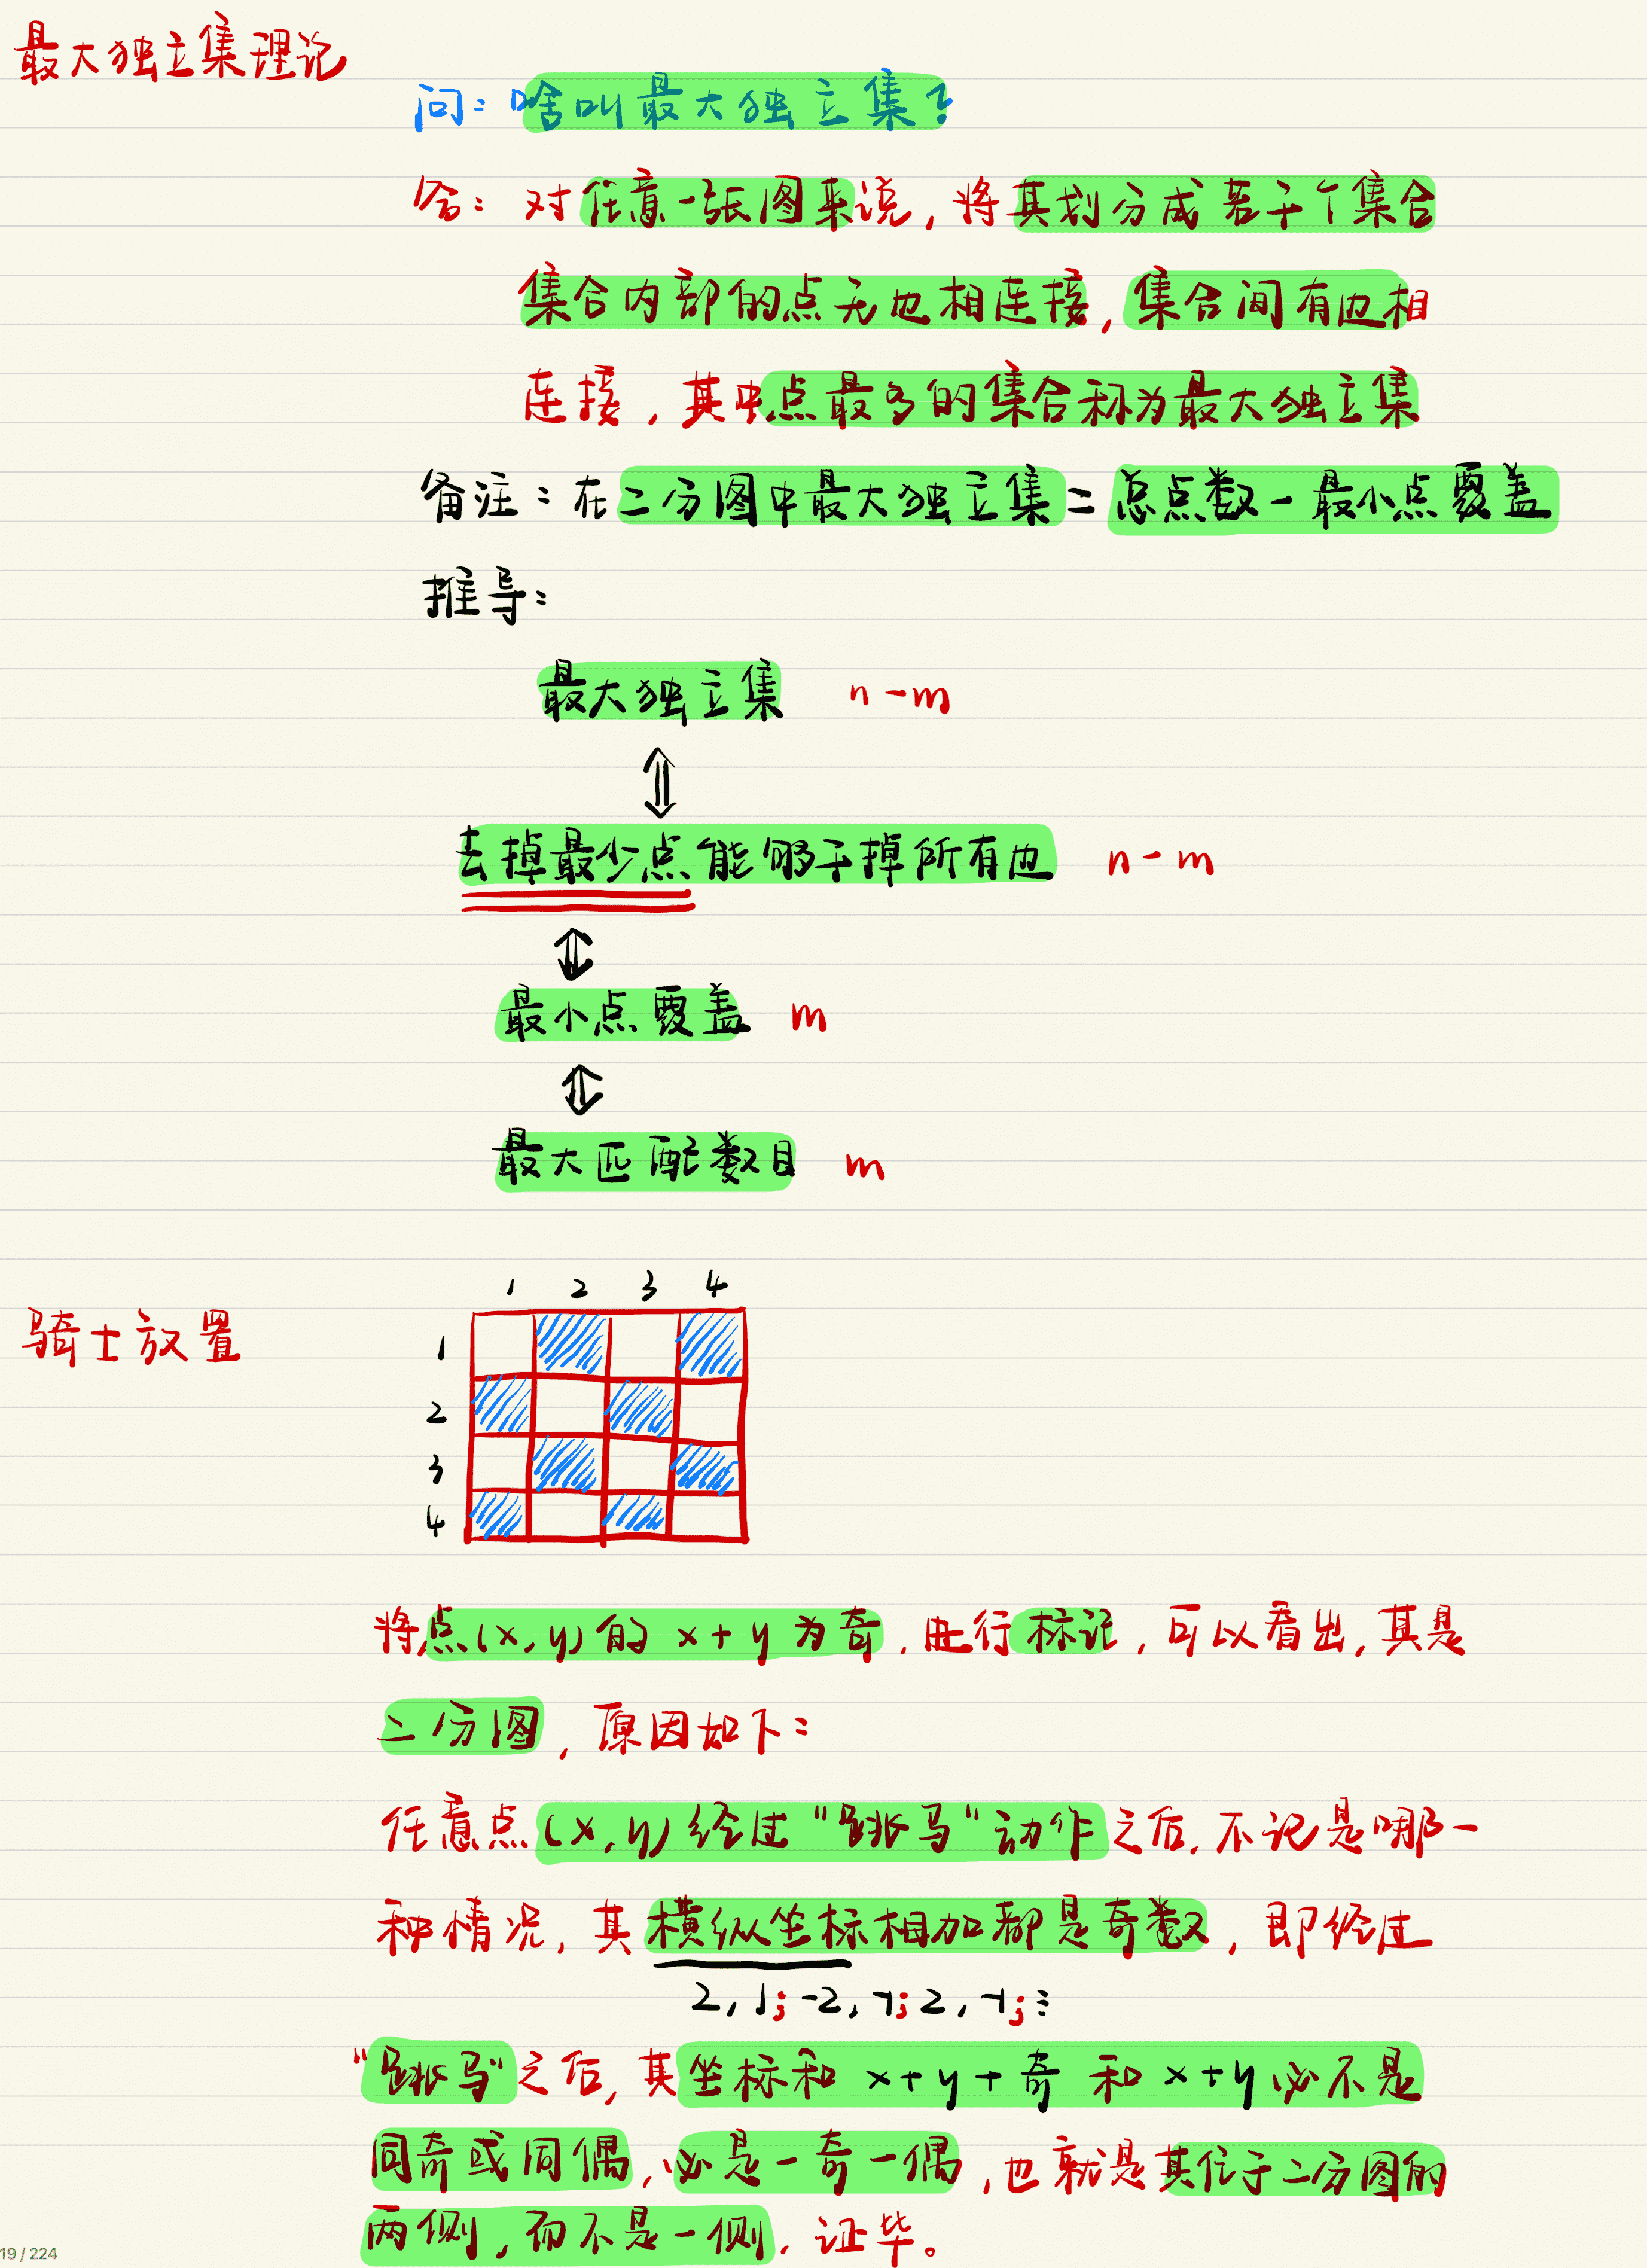 最大独立集理论
问：啥叫最大独立集？
答：对任意一张图来说，将其划分成若干个集合
集合内部的点无边相连接，集合间有边相
连接，其中点最多的集合称为最大独立集
备注：在二分图中最大独立集＝总点数－最小点覆盖
推导：
最大独立集 n-m
⇕
去掉最少点能够干掉所有边 n-m
⇕
最小点覆盖 m
⇕
最大匹配数目 m
1 2 3 4
骑士放置
1
2
3
4
将点(x,y)的x+y为奇，进行标记，可以看出，其是
二分图，原因如下：
任意点(x,y)经过“跳马”动作之后，不论是哪一
种情况，其横纵坐标相加都是奇数，即经过
2,1;-2,-1;2,-1;⋮
“跳马”之后，其坐标和x+y+奇和x+y必不是
同奇或同偶，必是一奇一偶，也就是其位于二分图的
两侧，而不是一侧，证毕。
19 / 224